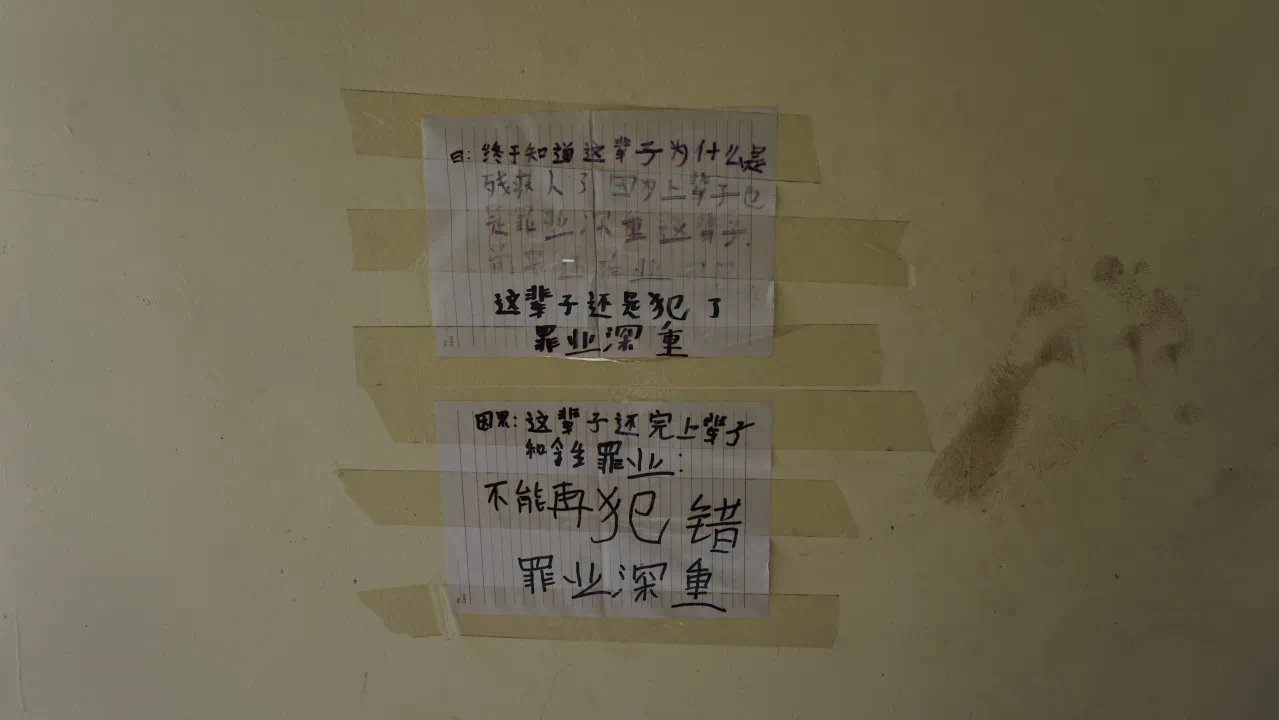 曰: 终于知道这辈子为什么是
残疾人了 因为上辈子也
是罪业深重这辈子.
这辈子还是犯了
罪业深重
因果: 这辈子还完上辈子
和今生罪业:
不能再犯错
罪业深重